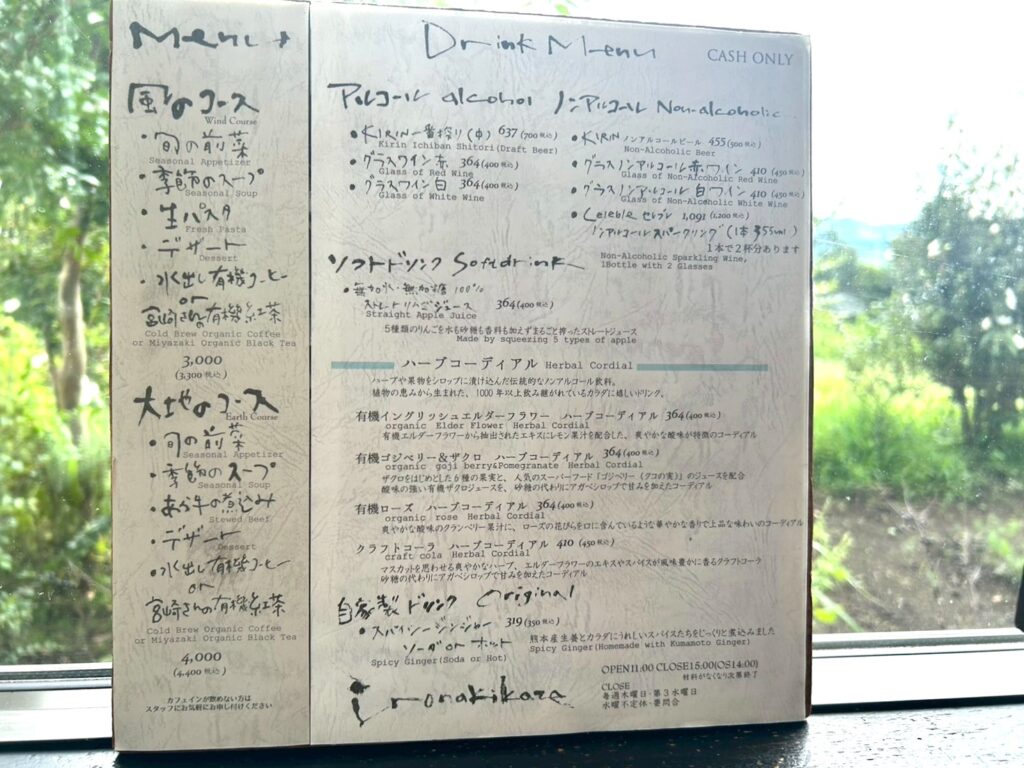 Menu
風のコース
Wind Course
・旬の前菜
Seasonal Appetizer
・季節のスープ
Seasonal Soup
・生パスタ
Fresh Pasta
・デザート
Dessert
・水出し有機コーヒー
or
宮崎さんの有機紅茶
Cold Brew Organic Coffee
or Miyazaki Organic Black Tea
3,000
(3,300 税込)
大地のコース
Earth Course
・旬の前菜
Seasonal Appetizer
・季節のスープ
Seasonal Soup
・あら牛の煮込み
Stewed Beef
・デザート
Dessert
・水出し有機コーヒー
or
宮崎さんの有機紅茶
Cold Brew Organic Coffee
or Miyazaki Organic Black Tea
4,000
(4,400 税込)
カフェインが飲めない方は
スタッフにお気軽にお申し付けください
Drink Menu
CASH ONLY
アルコール alcohol
・KIRIN一番搾り(中) 637(700税込)
Kirin Ichiban Shitori(Draft Beer)
・グラスワイン赤 364(400税込)
Glass of Red Wine
・グラスワイン白 364(400税込)
Glass of White Wine
ノンアルコール Non-alcoholic
・KIRIN ノンアルコールビール 455(500税込)
Non-Alcoholic Beer
・グラスノンアルコール赤ワイン 410(450税込)
Glass of Non-Alcoholic Red Wine
・グラスノンアルコール白ワイン 410(450税込)
Glass of Non-Alcoholic White Wine
・Celeble セレブレ 1,091(1,200税込)
ノンアルコールスパークリング(1本355ml)
1本で2杯分あります
Non-Alcoholic Sparkling Wine,
1Bottle with 2 Glasses
ソフトドリンク Softdrink
・無加水・無加糖 100%
ストレートりんごジュース 364(400税込)
Straight Apple Juice
5種類のりんごを水も砂糖も香料も加えずまるごと搾ったストレートジュース
Made by squeezing 5 types of apple
ハーブコーディアル Herbal Cordial
ハーブや果物をシロップに漬け込んだ伝統的なノンアルコール飲料。
植物の恵みから生まれた、1000年以上飲み継がれているカラダに嬉しいドリンク。
有機イングリッシュエルダーフラワー ハーブコーディアル 364(400税込)
organic Elder Flower Herbal Cordial
有機エルダーフラワーから抽出されたエキスにレモン果汁を配合した、爽やかな酸味が特徴のコーディアル
有機ゴジベリー&ザクロ ハーブコーディアル 364(400税込)
organic goji berry&Pomegranate Herbal Cordial
ザクロをはじめとした6種の果実と、人気のスーパーフード「ゴジベリー(クコの実)」のジュースを配合
酸味の強い有機ザクロジュースを、砂糖の代わりにアガベシロップで甘みを加えたコーディアル
有機ローズ ハーブコーディアル 364(400税込)
organic rose Herbal Cordial
爽やかな酸味のクランベリー果汁に、ローズの花びらを口に含んでいるような華やかな香りで上品な味わいのコーディアル
クラフトコーラ ハーブコーディアル 410(450税込)
craft cola Herbal Cordial
マスカットを思わせる爽やかなハーブ、エルダーフラワーのエキスやスパイスが風味豊かに香るクラフトコーラ
砂糖の代わりにアガベシロップで甘みを加えたコーディアル
自家製ドリンク Original
・スパイシージンジャー 319(350税込)
ソーダ or ホット
Spicy Ginger(Soda or Hot)
熊本産生姜とカラダにうれしいスパイスたちをじっくりと煮込みました
Spicy Ginger(Homemade with Kumamoto Ginger)
Ironakikaze
OPEN11:00 CLOSE15:00(OS14:00)
材料がなくなり次第終了
CLOSE
毎週木曜日・第3水曜日
水曜不定休・要問合